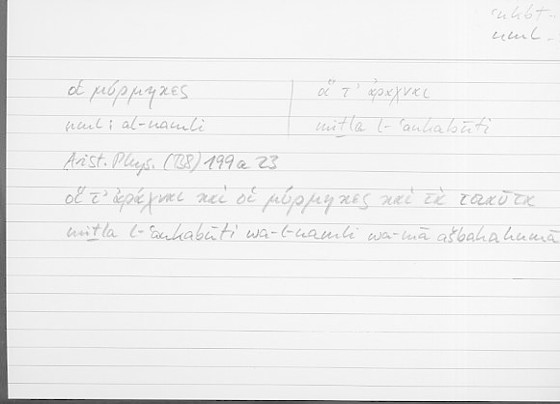 ʿnkbt
nml
οἱ μύρμηκες | αἵ τ' ἀράχναι
nml : al-namli | miṯla l-ʿankabūti
Arist. Phys. (B8) 199a 23
αἵ τ' ἀράχναι καὶ οἱ μύρμηκες καὶ τὰ τοιαῦτα
miṯla l-ʿankabūti wa-l-namli wa-mā ašbahahumā